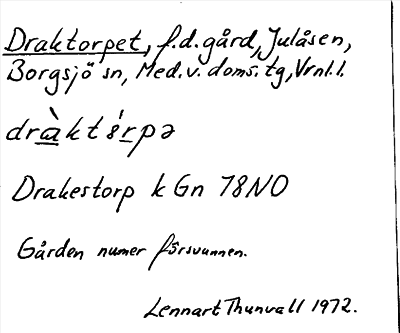 Draktorpet, f.d. gård, Julåsen,
Borgsjö sn, Med. v. doms. tg, Vrnl. l.
Drakestorp k Gn 78NO
Gården numer försvunnen.
Lennart Thunvall 1972.